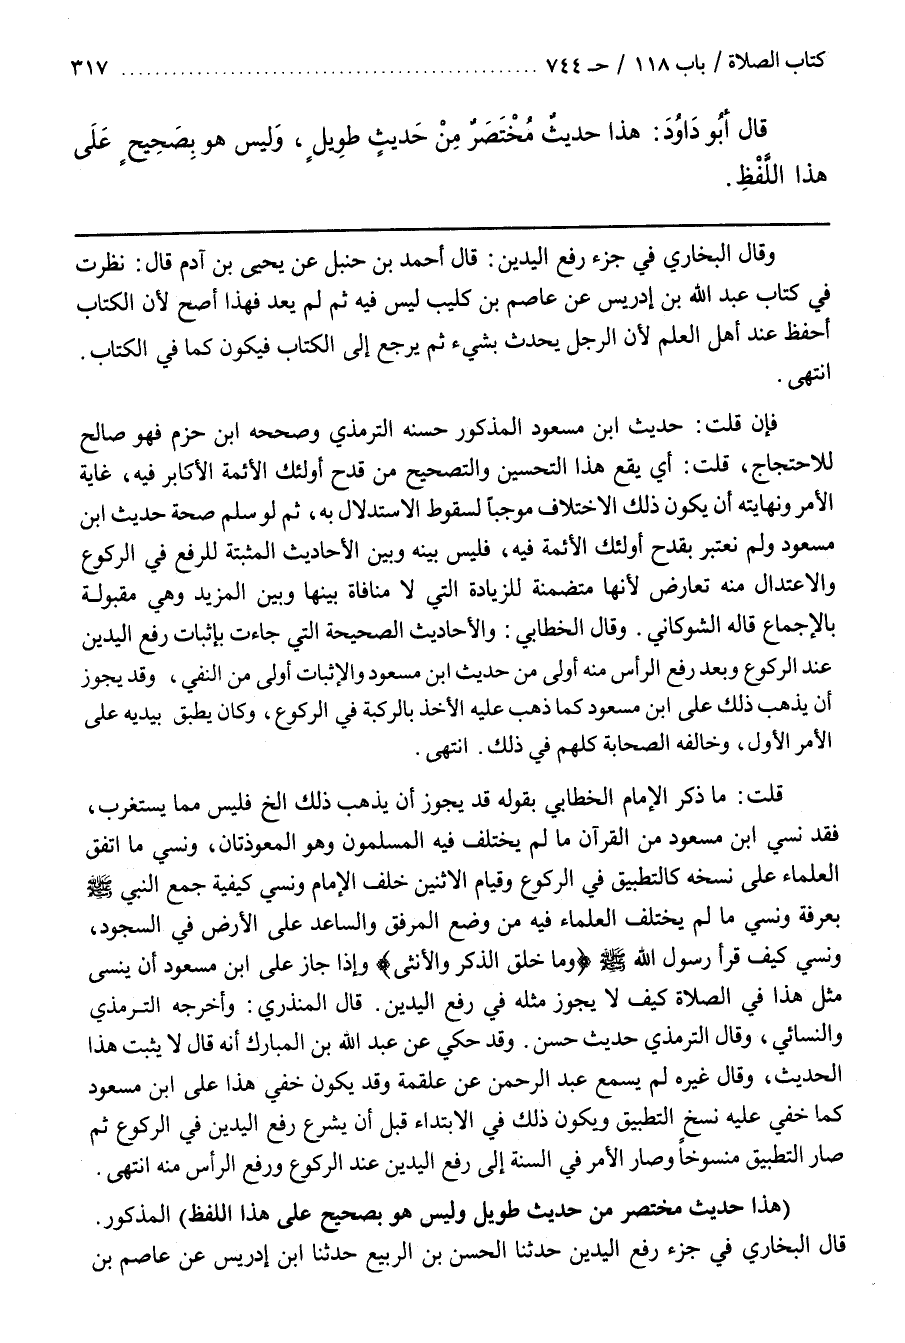 كتاب الصلاة / باب ١١٨ / حـ ٧٤٤ .................................................. ٣١٧
قال أَبُو دَاوُدَ: هذا حديثٌ مُخْتَصَرٌ مِنْ حَديثٍ طوِيلٍ، وَليس هو بِصَحِيحٍ عَلَى
هذا اللَّفْظِ.
وقال البخاري في جزء رفع اليدين: قال أحمد بن حنبل عن يحيى بن آدم قال: نظرت
في كتاب عبد الله بن إدريس عن عاصم بن كليب ليس فيه ثم لم يعد فهذا أصح لأن الكتاب
أحفظ عند أهل العلم لأن الرجل يحدث بشيء ثم يرجع إلى الكتاب فيكون كما في الكتاب.
انتهى.
فإن قلت: حديث ابن مسعود المذكور حسنه الترمذي وصححه ابن حزم فهو صالح
للاحتجاج، قلت: أي يقع هذا التحسين والتصحيح من قدح أولئك الأئمة الأكابر فيه، غاية
الأمر ونهايته أن يكون ذلك الاختلاف موجباً لسقوط الاستدلال به، ثم لو سلم صحة حديث ابن
مسعود ولم نعتبر بقدح أولئك الأئمة فيه، فليس بينه وبين الأحاديث المثبتة للرفع في الركوع
والاعتدال منه تعارض لأنها متضمنة للزيادة التي لا منافاة بينها وبين المزيد وهي مقبولة
بالإجماع قاله الشوكاني. وقال الخطابي: والأحاديث الصحيحة التي جاءت بإثبات رفع اليدين
عند الركوع وبعد رفع الرأس منه أولى من حديث ابن مسعود والإثبات أولى من النفي، وقد يجوز
أن يذهب ذلك على ابن مسعود كما ذهب عليه الأخذ بالركبة في الركوع، وكان يطبق بيديه على
الأمر الأول، وخالفه الصحابة كلهم في ذلك. انتهى.
قلت: ما ذكر الإمام الخطابي بقوله قد يجوز أن يذهب ذلك الخ فليس مما يستغرب،
فقد نسي ابن مسعود من القرآن ما لم يختلف فيه المسلمون وهو المعوذتان، ونسي ما اتفق
العلماء على نسخه كالتطبيق في الركوع وقيام الاثنين خلف الإمام ونسي كيفية جمع النبي ﷺ
بعرفة ونسي ما لم يختلف العلماء فيه من وضع المرفق والساعد على الأرض في السجود،
ونسي كيف قرأ رسول الله ﷺ ﴿وما خلق الذكر والأنثى﴾ وإذا جاز على ابن مسعود أن ينسى
مثل هذا في الصلاة كيف لا يجوز مثله في رفع اليدين. قال المنذري: وأخرجه الترمذي
والنسائي، وقال الترمذي حديث حسن. وقد حكي عن عبد الله بن المبارك أنه قال لا يثبت هذا
الحديث، وقال غيره لم يسمع عبد الرحمن عن علقمة وقد يكون خفي هذا على ابن مسعود
كما خفي عليه نسخ التطبيق ويكون ذلك في الابتداء قبل أن يشرع رفع اليدين في الركوع ثم
صار التطبيق منسوخاً وصار الأمر في السنة إلى رفع اليدين عند الركوع ورفع الرأس منه انتهى.
(هذا حديث مختصر من حديث طويل وليس هو بصحيح على هذا اللفظ) المذكور.
قال البخاري في جزء رفع اليدين حدثنا الحسن بن الربيع حدثنا ابن إدريس عن عاصم بن